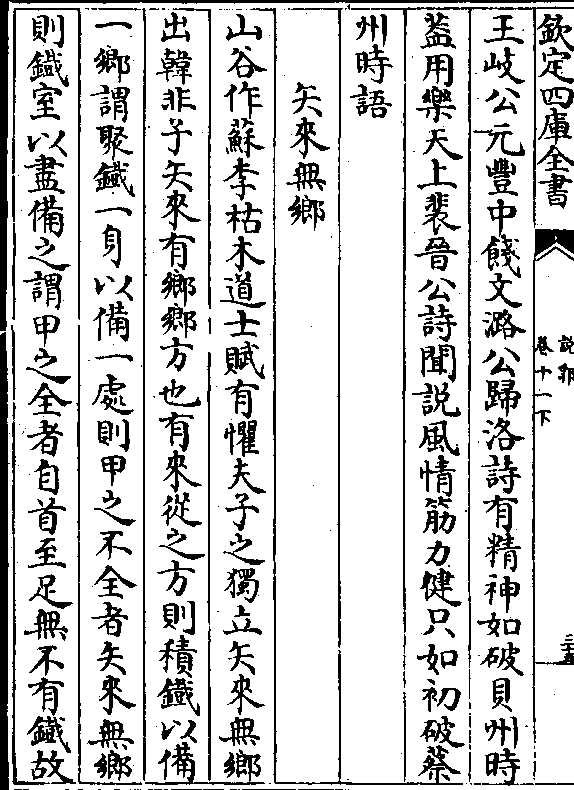 欽定四庫全書
說郛
卷十一下
王岐公元豐中餞文潞公歸洛詩有精神如破貝州時
葢用樂天上裴晉公詩聞説風情筋力健只如初破蔡
州時語
矢來無鄉
山谷作蘇李枯木道士賦有懼夫子之獨立矢來無鄉
出韓非子矢來有鄉鄉方也有來從之方則積鐵以備
一鄉謂聚鐵一身以備一處則甲之不全者矢來無鄉
則鐵室以盡備之謂甲之全者自首至足無不有鐵故